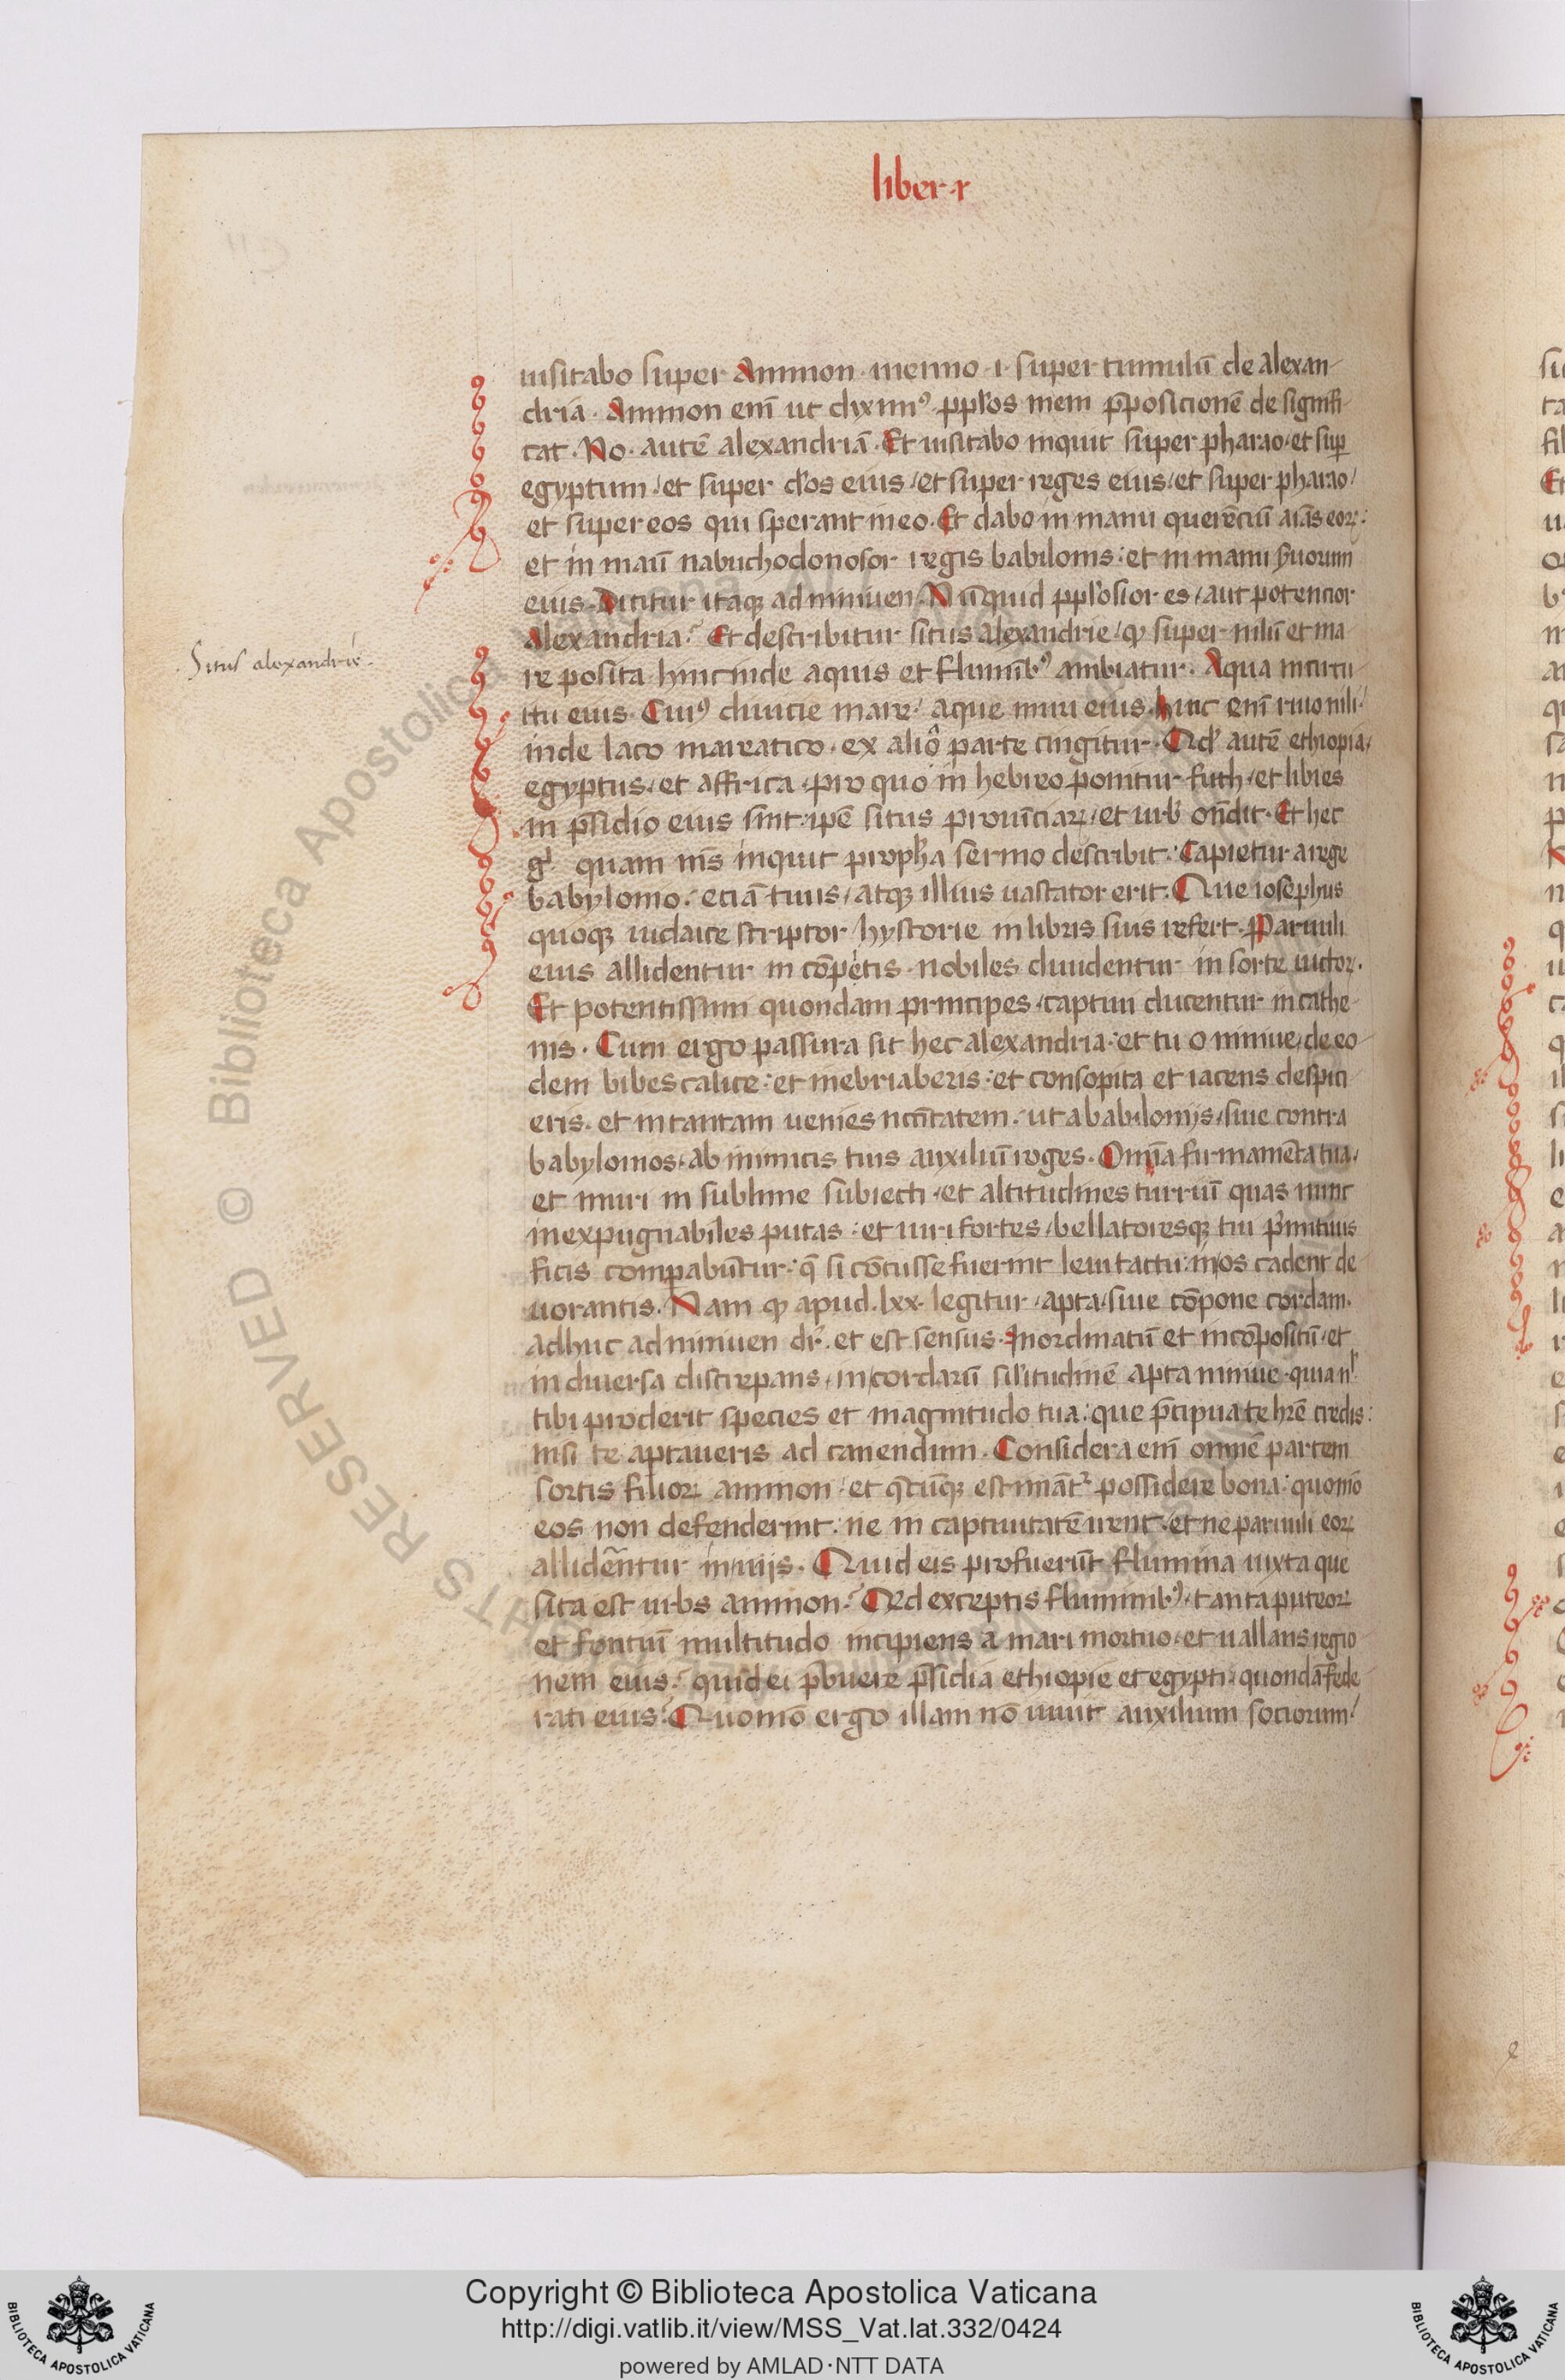 liber r
uisitabo super Ammon. inenno .i. super tumulū de alexan
dria. Ammon enī ut diximꝰ ppłos meīn p̄posicionē de signifi
cat. No. autē alexandriā. Et uisitabo inquit super pharao et sup
egyptum / et super dłos eius / et super reges eius / et super pharao /
et super eos qui sperant in eo. Et dabo in manu querēciū aīas eoꝝ:
et in maū nabuchodonosor regis babilonis: et in manu s̄uorum
eius. Dicitur itaqꝫ ad niniuen. Nūquid ppłosior es / aut potencior
Alexandria? Et describitur situs alexandrie / ꝙ super nilū et ma
Situs alexandrie.
re posita hinc inde aquis et fluminībꝰ ambiatur. Aqua in circu
itu eius. Cuiꝰ diuicie mare / aque muri eius. hinc enī riuo nili /
inde laco mareatico. ex alio parte cingitur. Qd̕ autē ethiopia /
egyptus / et affrica / pro quo in hebreo ponitur futh / et libies
in p̄sidio eius sint: ipē situs prouīciaꝝ / et urb̕ on̄dit. Et hec
g̕ quam nīs inquit propħa sermo describit: Capietur a rege
babylonio: eciā tuus / atqꝫ illius uastator erit. Que iosephus
quoqꝫ iudaice scriptor hystorie in libris suis refert. Paruuli
eius allidentur in cōpetis. nobiles diuidentur in sorte uictoꝝ.
Et potentissimi quondam principes / captiui ducentur in cathe
nis. Cum ergo passura sit hec alexandria: et tu o niniue / de eo
dem bibes calice: et inebriaberis: et consopita et iacens despici
eris. et in tantam uenies nc̄itatem. ut a babilonijs / siue contra
babylonios. ab inimicis tuis auxiliū roges. Omīa firmamēta tua /
et muri in sublime subiecti / et altitudines turriū quas nunc
inexpugnabiles putas: et uiri fortes / bellatoresqꝫ tui p̄mitiuis
ficis compabūtur: q̄ si cōcusse fuerint leui tactu: in os cadent de
uorantis. Nam ꝙ apud .lxx. legitur / apta / siue cōpone cordam.
adhuc ad niniuen dr̄. et est sensus. Inordinatū et incōpositū / et
in diuersa discrepans / in cordarū sił̕itudinē apta niniue. quia nł
tibi proderit species et magnitudo tua: que p̄cipua te hr̄e credis:
nisi te aptaueris ad canendum. Considera enī omnē partem
sortis filioꝝ ammon / et q̄cūqꝫ estimāt̕ possidere bona: quomō
eos non defenderint: ne in captiuitatē irent. et ne paruuli eoꝝ
allidērentur in uijs. Quid eis profuerūt flumina iuxta que
sita est urbs ammon? Sed exceptis fluminibꝰ / tanta puteoꝝ
et fontiū multitudo incipiens a mari mortuo / et uallans regio
nem eius? quid ei p̄buere p̄sidia ethiopie et egypti / quondā fede
rati eius? Quomō ergo illam nō iuuit auxilium sociorum /
© Biblioteca Apostolica Vaticana
Copyright © Biblioteca Apostolica Vaticana
http://digi.vatlib.it/view/MSS_Vat.lat.332/0424
powered by AMLAD·NTT DATA
BIBLIOTECA APOSTOLICA VATICANA
BIBLIOTECA APOSTOLICA VATICANA